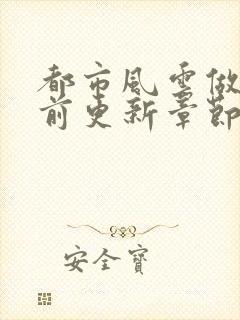 都市風雲做
前更新章節
安全寶